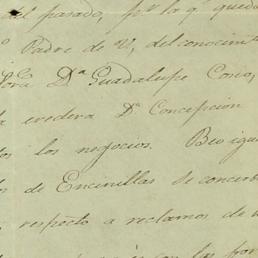 del pasado, p.r la q.e queda
Padre de V, del conocim
Sora D.a Guadalupe Cosio,
eredera D.a Concepcion
los negocios. Beo igu
de Encinillas se concer
respecto a reclamos de